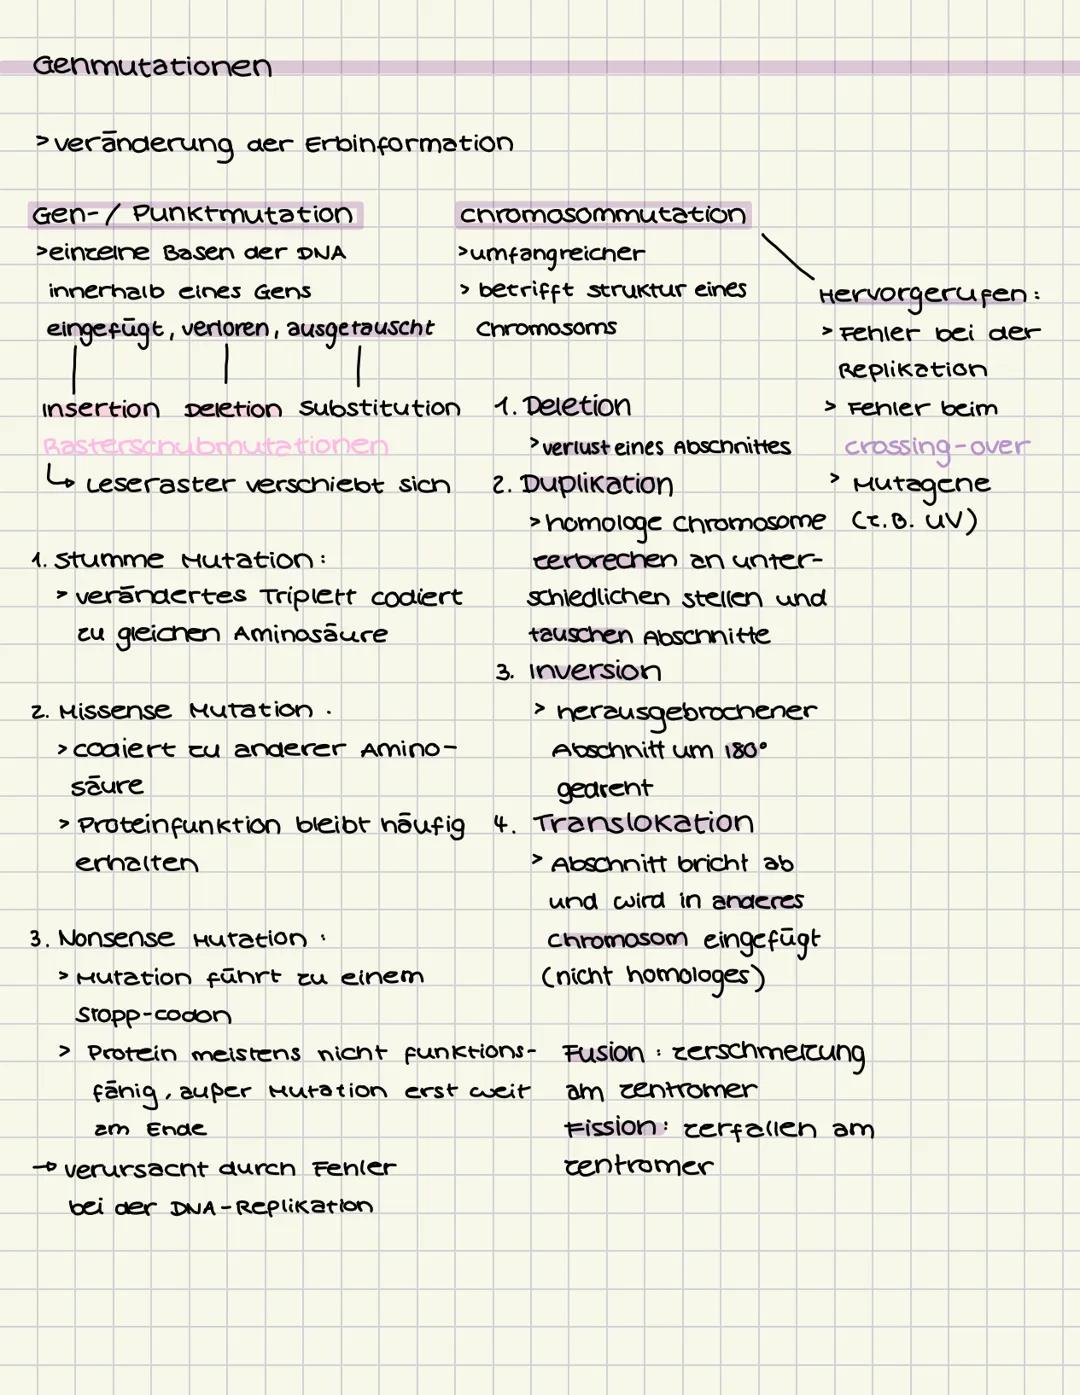 Genmutationen
> veränderung der Erbinformation
Gen-/ Punktmutation
> einzelne Basen der DNA
innerhalb eines Gens
eingefügt, verloren, ausgetauscht
Insertion Deletion Substitution
Rasterschubmutationen
↳ Leseraster verschiebt sich
1. Stumme Mutation:
> verändertes Triplett codiert
zu gleichen Aminosäure
2. Missense Mutation.
> codiert zu anderer Amino-
säure
> Proteinfunktion bleibt häufig
erhalten
3. Nonsense Mutation:
> Mutation führt zu einem
Stopp-codon
> Protein meistens nicht funktions-
fähig, außer Mutation erst weit
am Ende
→ verursacht durch Fehler
bei der DNA-Replikation
chromosommutation
> umfangreicher
> betrifft struktur eines
Chromosoms
1. Deletion
> verlust eines Abschnittes
2. Duplikation
> homologe Chromosome
zerbrechen an unter-
schiedlichen stellen und
tauschen Abschnitte
3. Inversion
> herausgebrochener
Abschnitt um 180°
gedreht
4. Translokation
> Abschnitt bricht ab
und wird in anderes
chromosom eingefügt
(nicht homologes)
Fusion: zerschmelzung
am zentromer
Fission: zerfallen am
zentromer
Hervorgerufen:
> Fehler bei der
Replikation
> Fehler beim
crossing-over
> Mutagene
(z.B. UV)